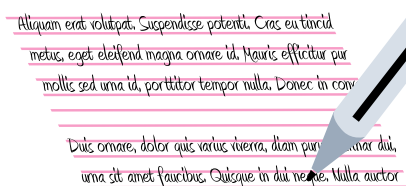 Aliquam erat volutpat. Suspendisse potenti. Cras eu tincid
metus, eget eleifend magna ornare id. Mauris efficitur pur
mollis sed urna id, porttitor tempor nulla. Donec in con
Duis ornare, dolor quis varius viverra, diam dui,
urna sit amet faucibus. Quisque in dui Nulla auctor